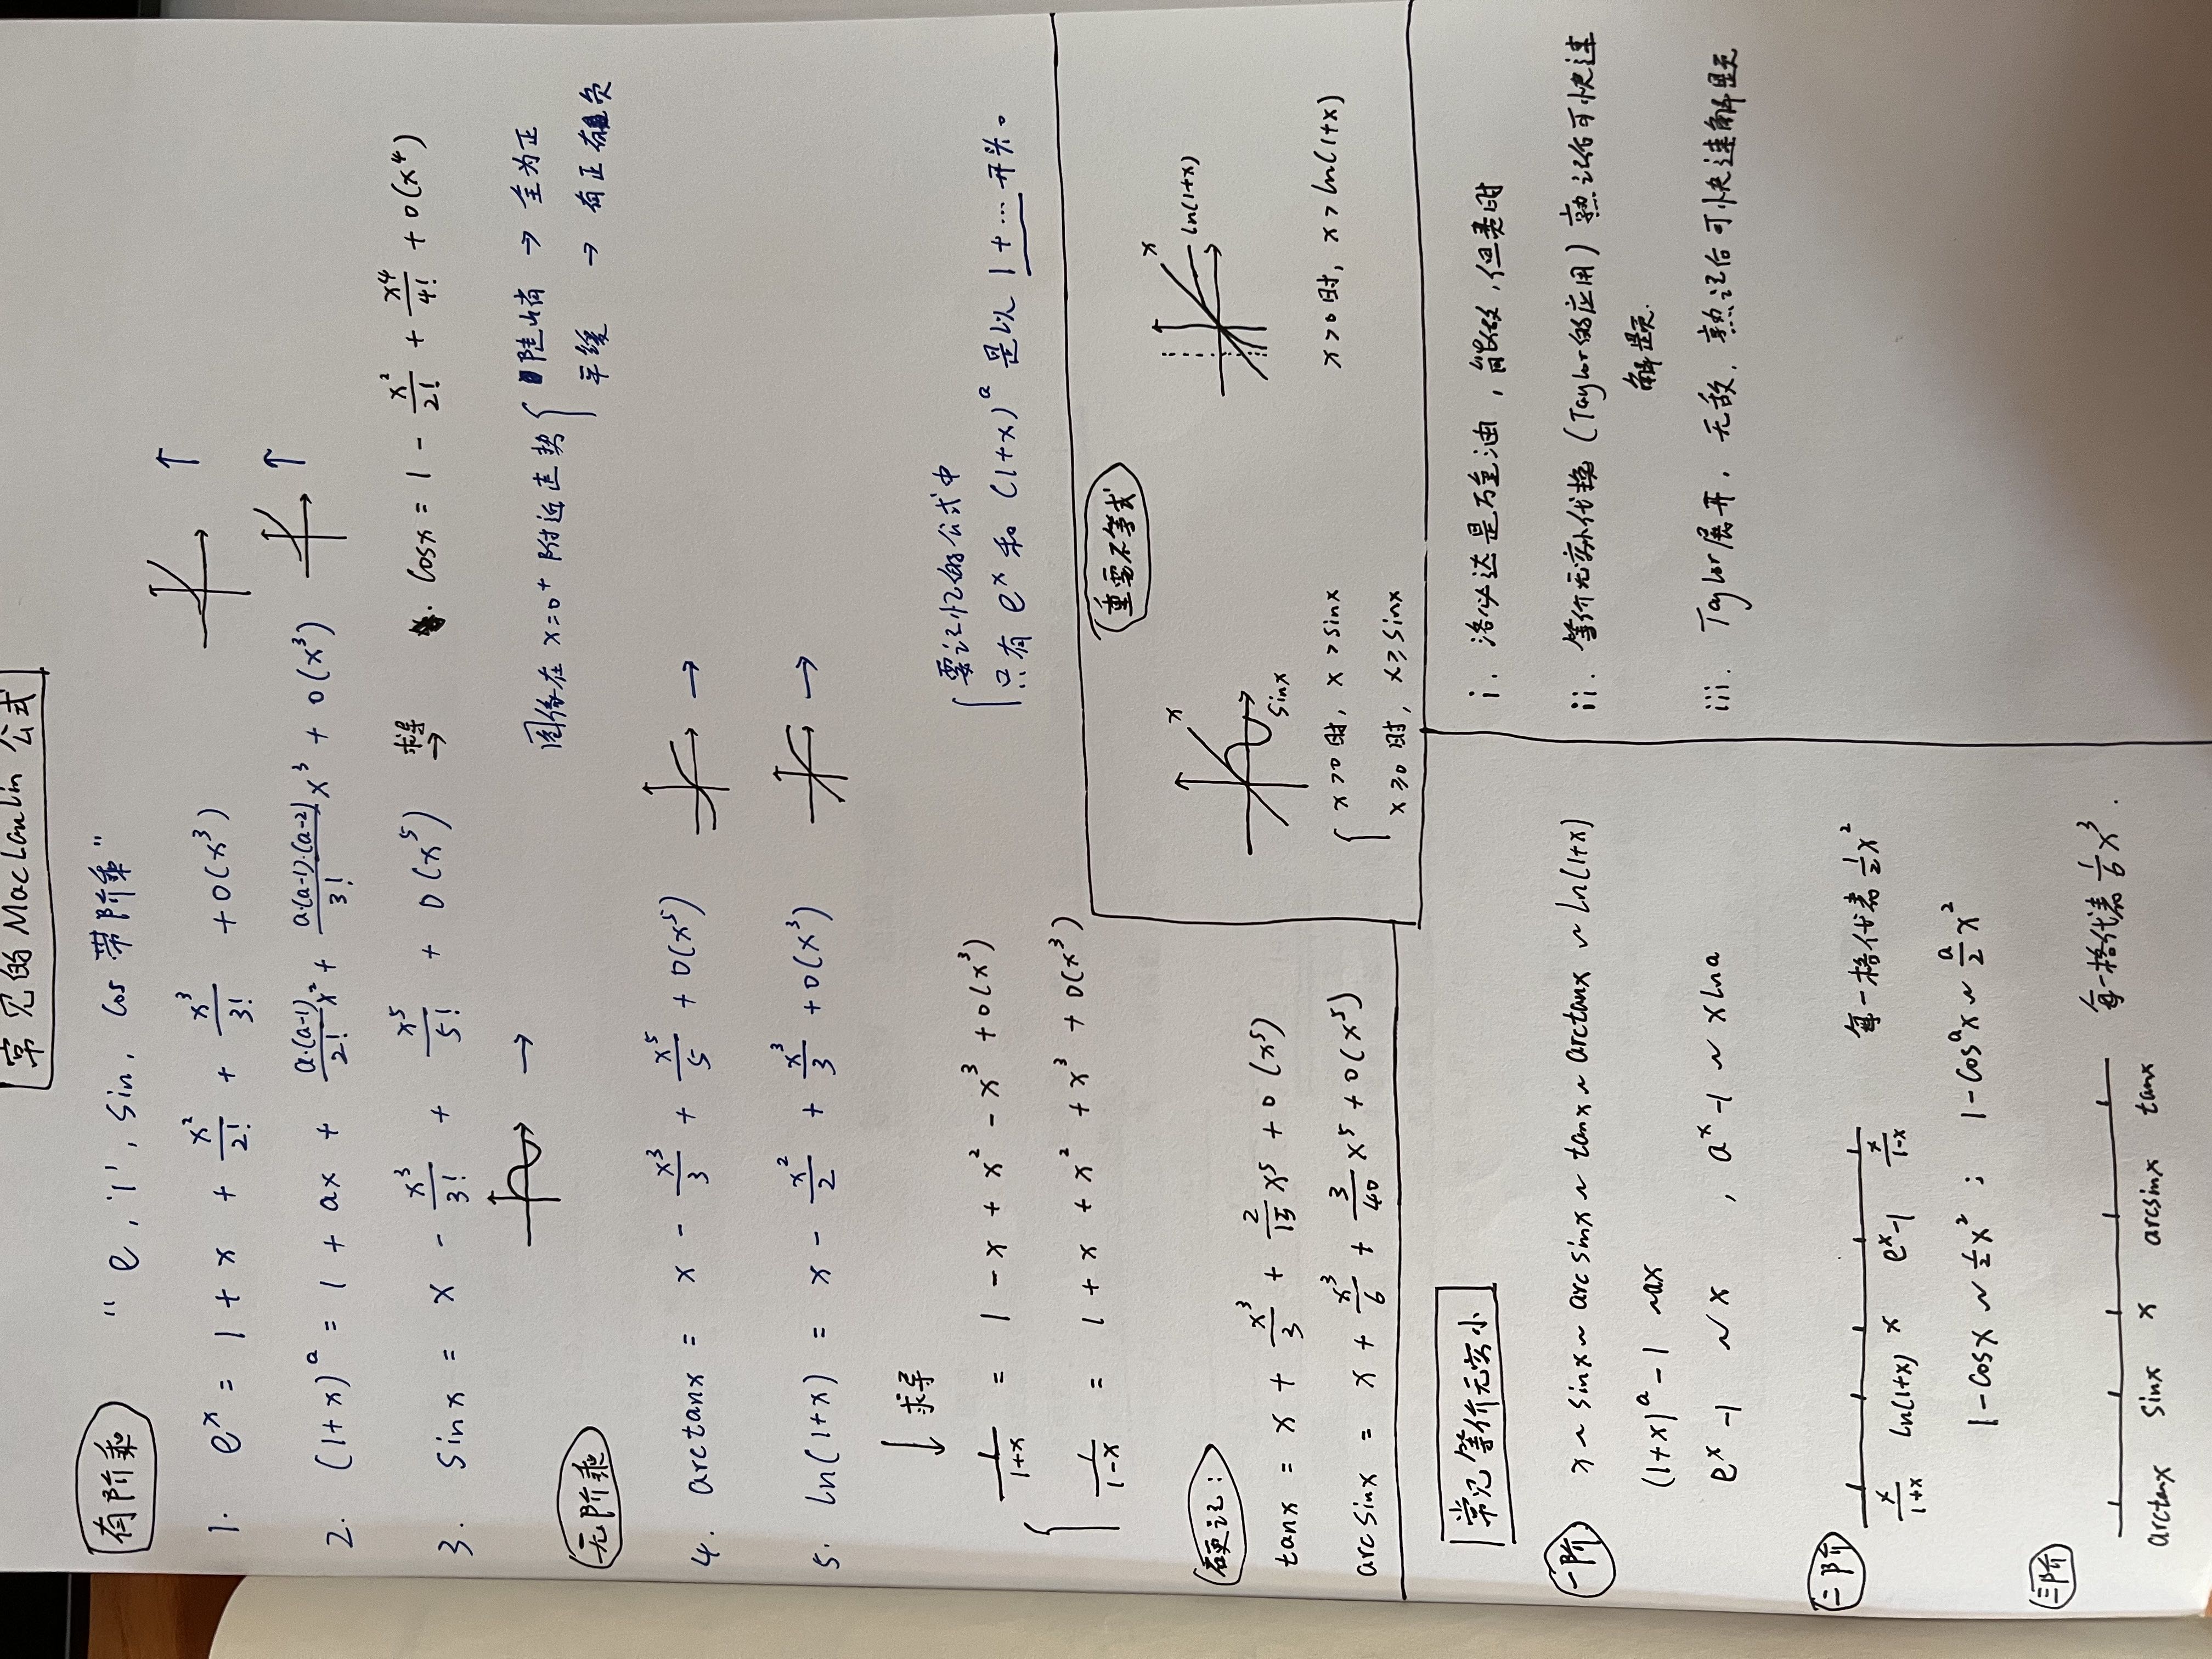 常见的MacLaulin 公式
有阶乘
“e, '1', sin, cos 带阶乘”
1. e^x = 1 + x + x²/2! + x³/3! + o(x³)
2. (1+x)^a = 1 + ax + a·(a-1)/2! x² + a·(a-1)·(a-2)/3! x³ + o(x³)
3. sinx = x - x³/3! + x⁵/5! + o(x⁵) 求导 → cosx = 1 - x²/2! + x⁴/4! + o(x⁴)
→
图像在 x=0⁺ 附近走势 { 陡峭 → 全为正
平缓 → 有正有负
无阶乘
4. arctanx = x - x³/3 + x⁵/5 + o(x⁵) →
5. ln(1+x) = x - x²/2 + x³/3 + o(x³) →
↓ 求导
1/(1+x) = 1 - x + x² - x³ + o(x³)
1/(1-x) = 1 + x + x² + x³ + o(x³)
要记忆的公式中
只有 e^x 和 (1+x)^a 是以 1+… 开头。
硬记:
tanx = x + x³/3 + 2/15 x⁵ + o(x⁵)
arcsinx = x + x³/6 + 3/40 x⁵ + o(x⁵)
重要不等式
x
sinx
x>0 时, x>sinx
x≥0 时, x≥sinx
x
ln(1+x)
x>0 时, x>ln(1+x)
常见等价无穷小
一阶 x ~ sinx ~ arcsinx ~ tanx ~ arctanx ~ ln(1+x)
(1+x)^a - 1 ~ ax
e^x - 1 ~ x , a^x - 1 ~ xlna
二阶
x/(1+x) ln(1+x) x e^x-1 x/(1-x) 每一格代表 1/2 x²
1-cosx ~ 1/2 x² ; 1-cos^a x ~ a/2 x²
三阶
arctanx sinx x arcsinx tanx 每一格代表 1/6 x³.
i. 洛必达是万金油, 能做, 但费时
ii. 等价无穷小代换 (Taylor的应用) 熟记后可快速
解题.
iii. Taylor展开, 无敌. 熟记后可快速解题